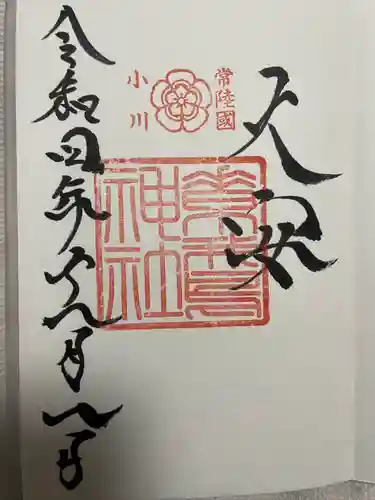 常陸國
小川
天安
素鵞
神社
令和四年六月八日